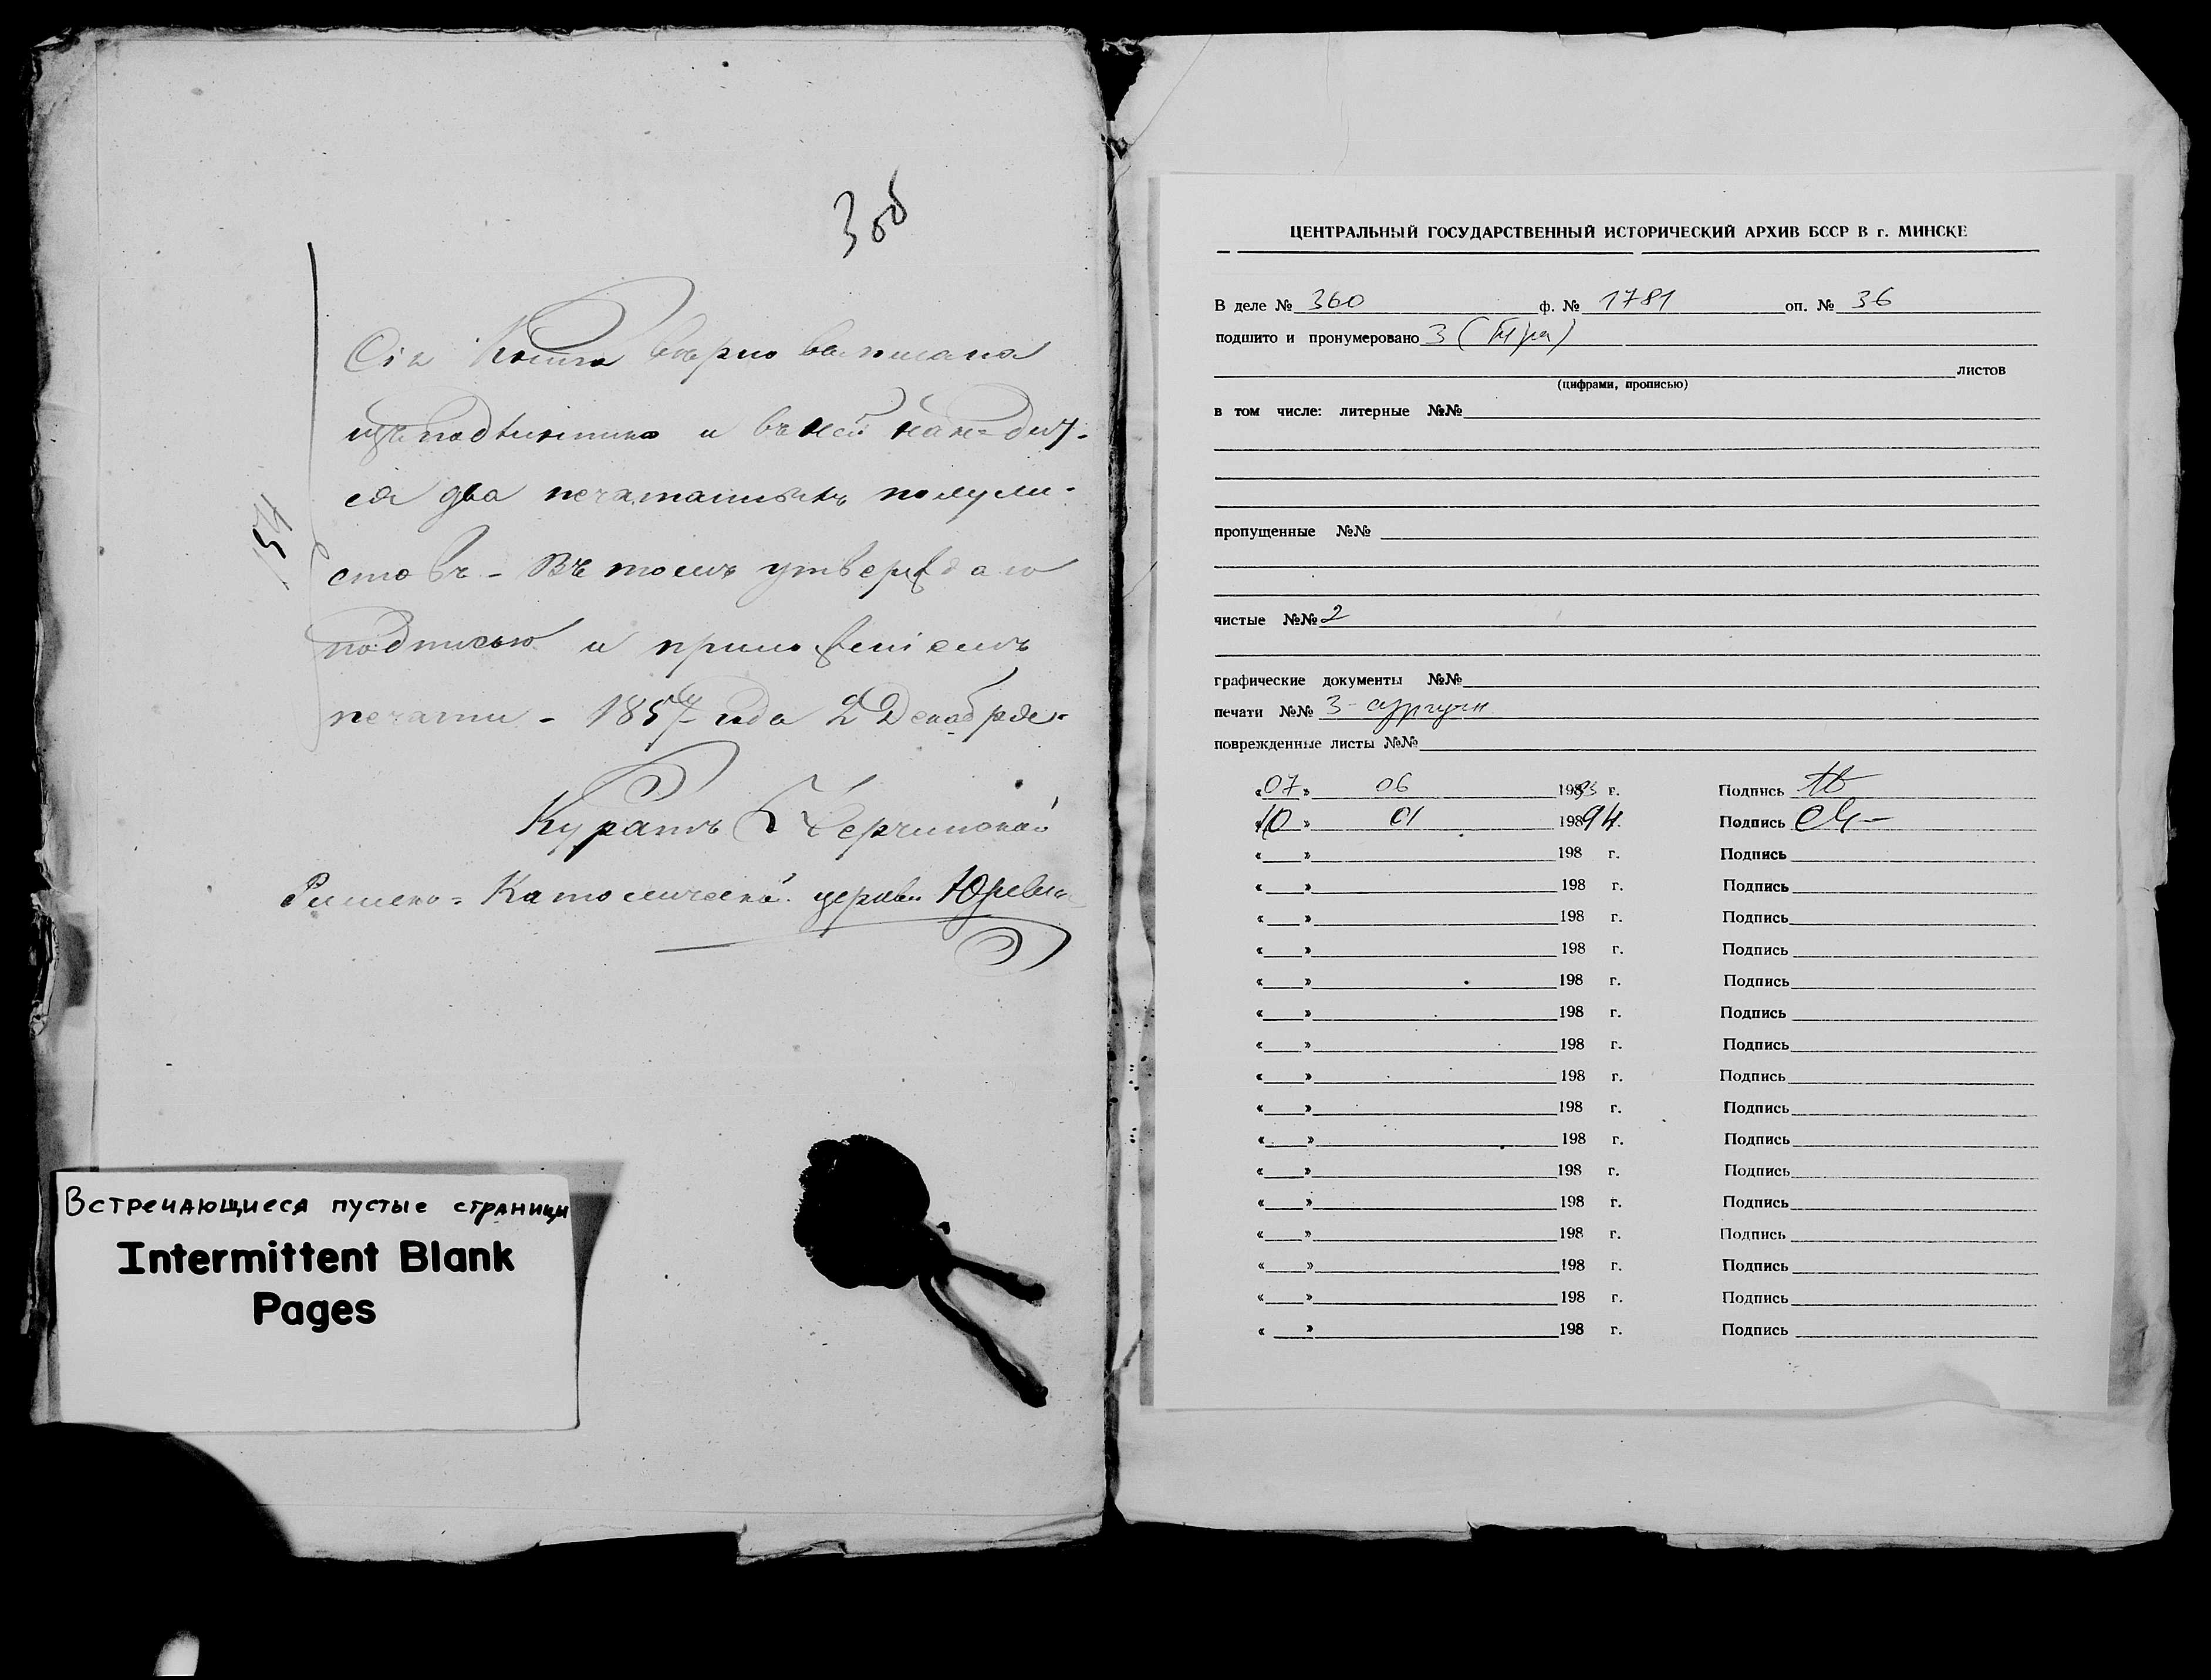 Зоб
Сія Книга вѣрно выписана
изъ подлинника и въ ней находит-
ся два печатаныхъ полули-
стовъ - Въ томъ утверждаю
подписью и приложеніемъ
печати - 1857 года 2 Декабря
Куратъ Черчинской
Римско-Католической церкви Юревичъ
Встречающиеся пустые страницы
Intermittent Blank
Pages
ЦЕНТРАЛЬНЫЙ ГОСУДАРСТВЕННЫЙ ИСТОРИЧЕСКИЙ АРХИВ БССР В г. МИНСКЕ
В деле № 360 ф. № 1781 оп. № 36
подшито и пронумеровано 3 (три)
листов
(цифрами, прописью)
в том числе: литерные №№
пропущенные №№
чистые №№ 2
графические документы №№
печати №№ 3 - сургучн
поврежденные листы №№
«07» 06 1983 г. Подпись
«10» 01 19894 г. Подпись
« » 198 г. Подпись
« » 198 г. Подпись
« » 198 г. Подпись
« » 198 г. Подпись
« » 198 г. Подпись
« » 198 г. Подпись
« » 198 г. Подпись
« » 198 г. Подпись
« » 198 г. Подпись
« » 198 г. Подпись
« » 198 г. Подпись
« » 198 г. Подпись
« » 198 г. Подпись
« » 198 г. Подпись
« » 198 г. Подпись
« » 198 г. Подпись